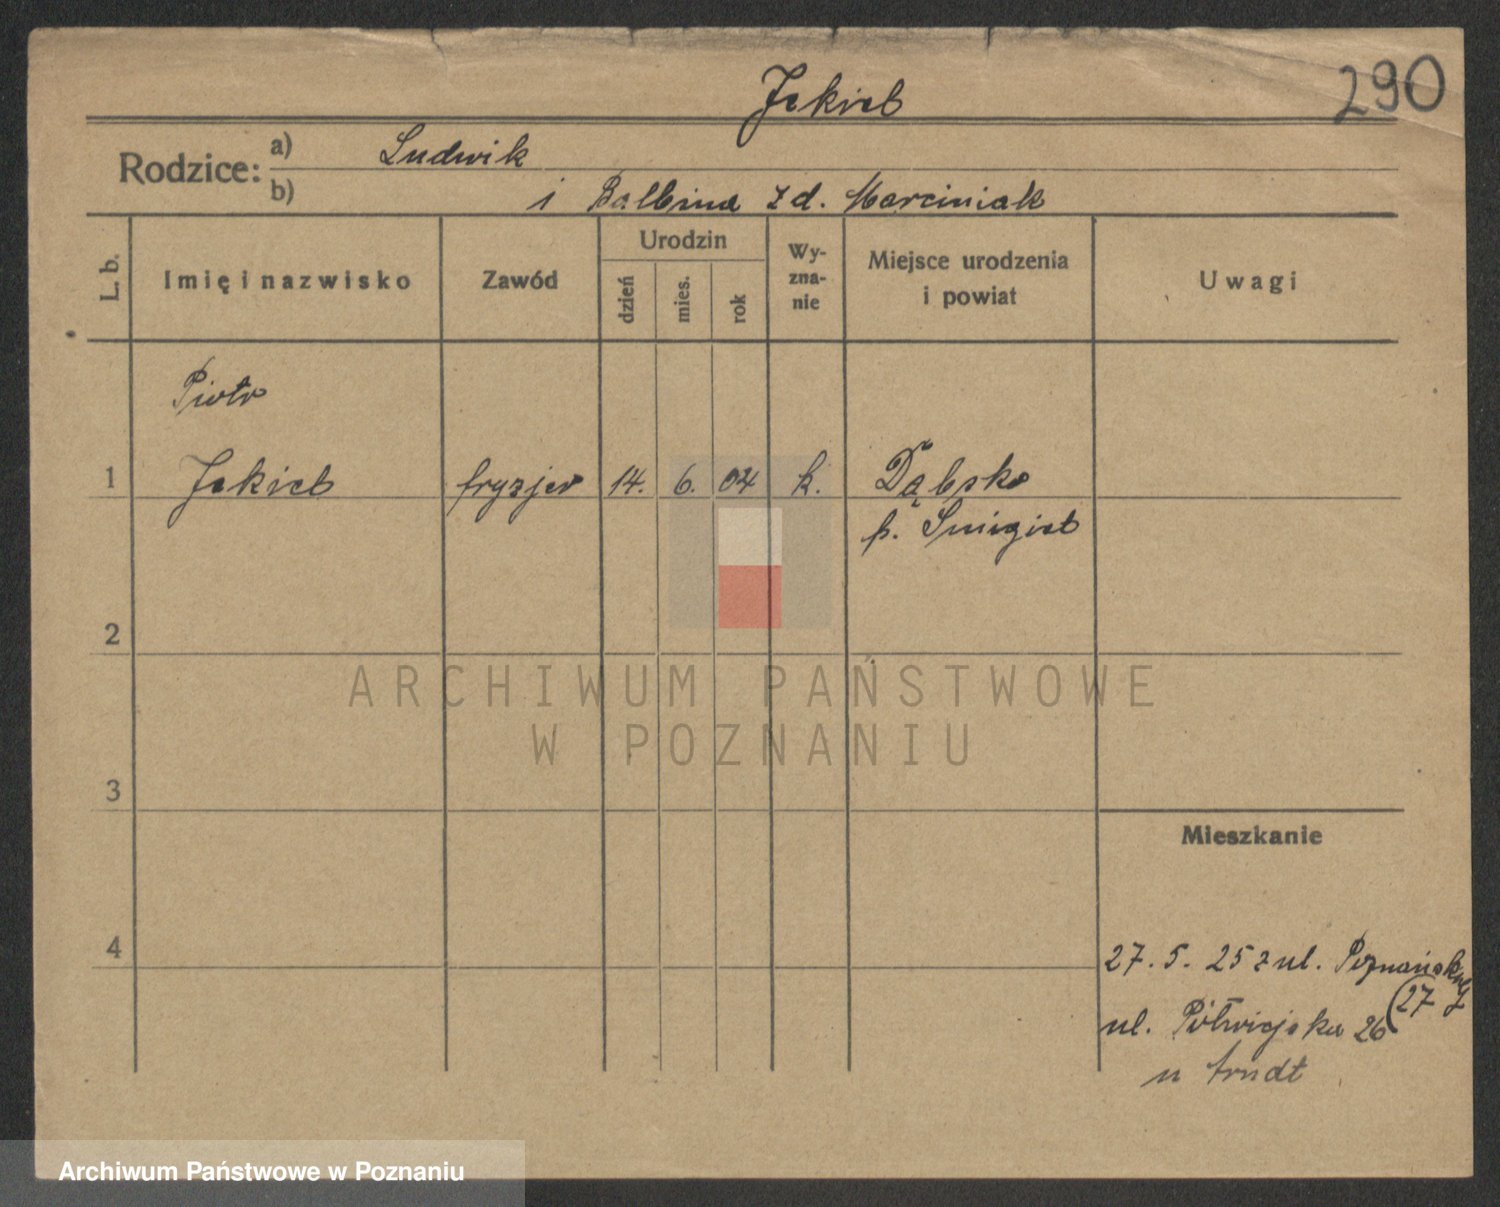 290
Jekieb
Rodzice: a) Ludwik
b) i Balbina z d. Marciniak
L. b.
Imię i nazwisko
Zawód
Urodzin
dzień
mies.
rok
Wy-
zna-
nie
Miejsce urodzenia
i powiat
Uwagi
Piotr
1 Jekieb fryzjer 14. 6. 04 k. Dąbsko
p. Śmigiel
2
ARCHIWUM PAŃSTWOWE
W POZNANIU
3
Mieszkanie
4
27. 5. 25 z ul. Poznańskiej
(27
ul. Półwiejska 26
u Arndt
Archiwum Państwowe w Poznaniu